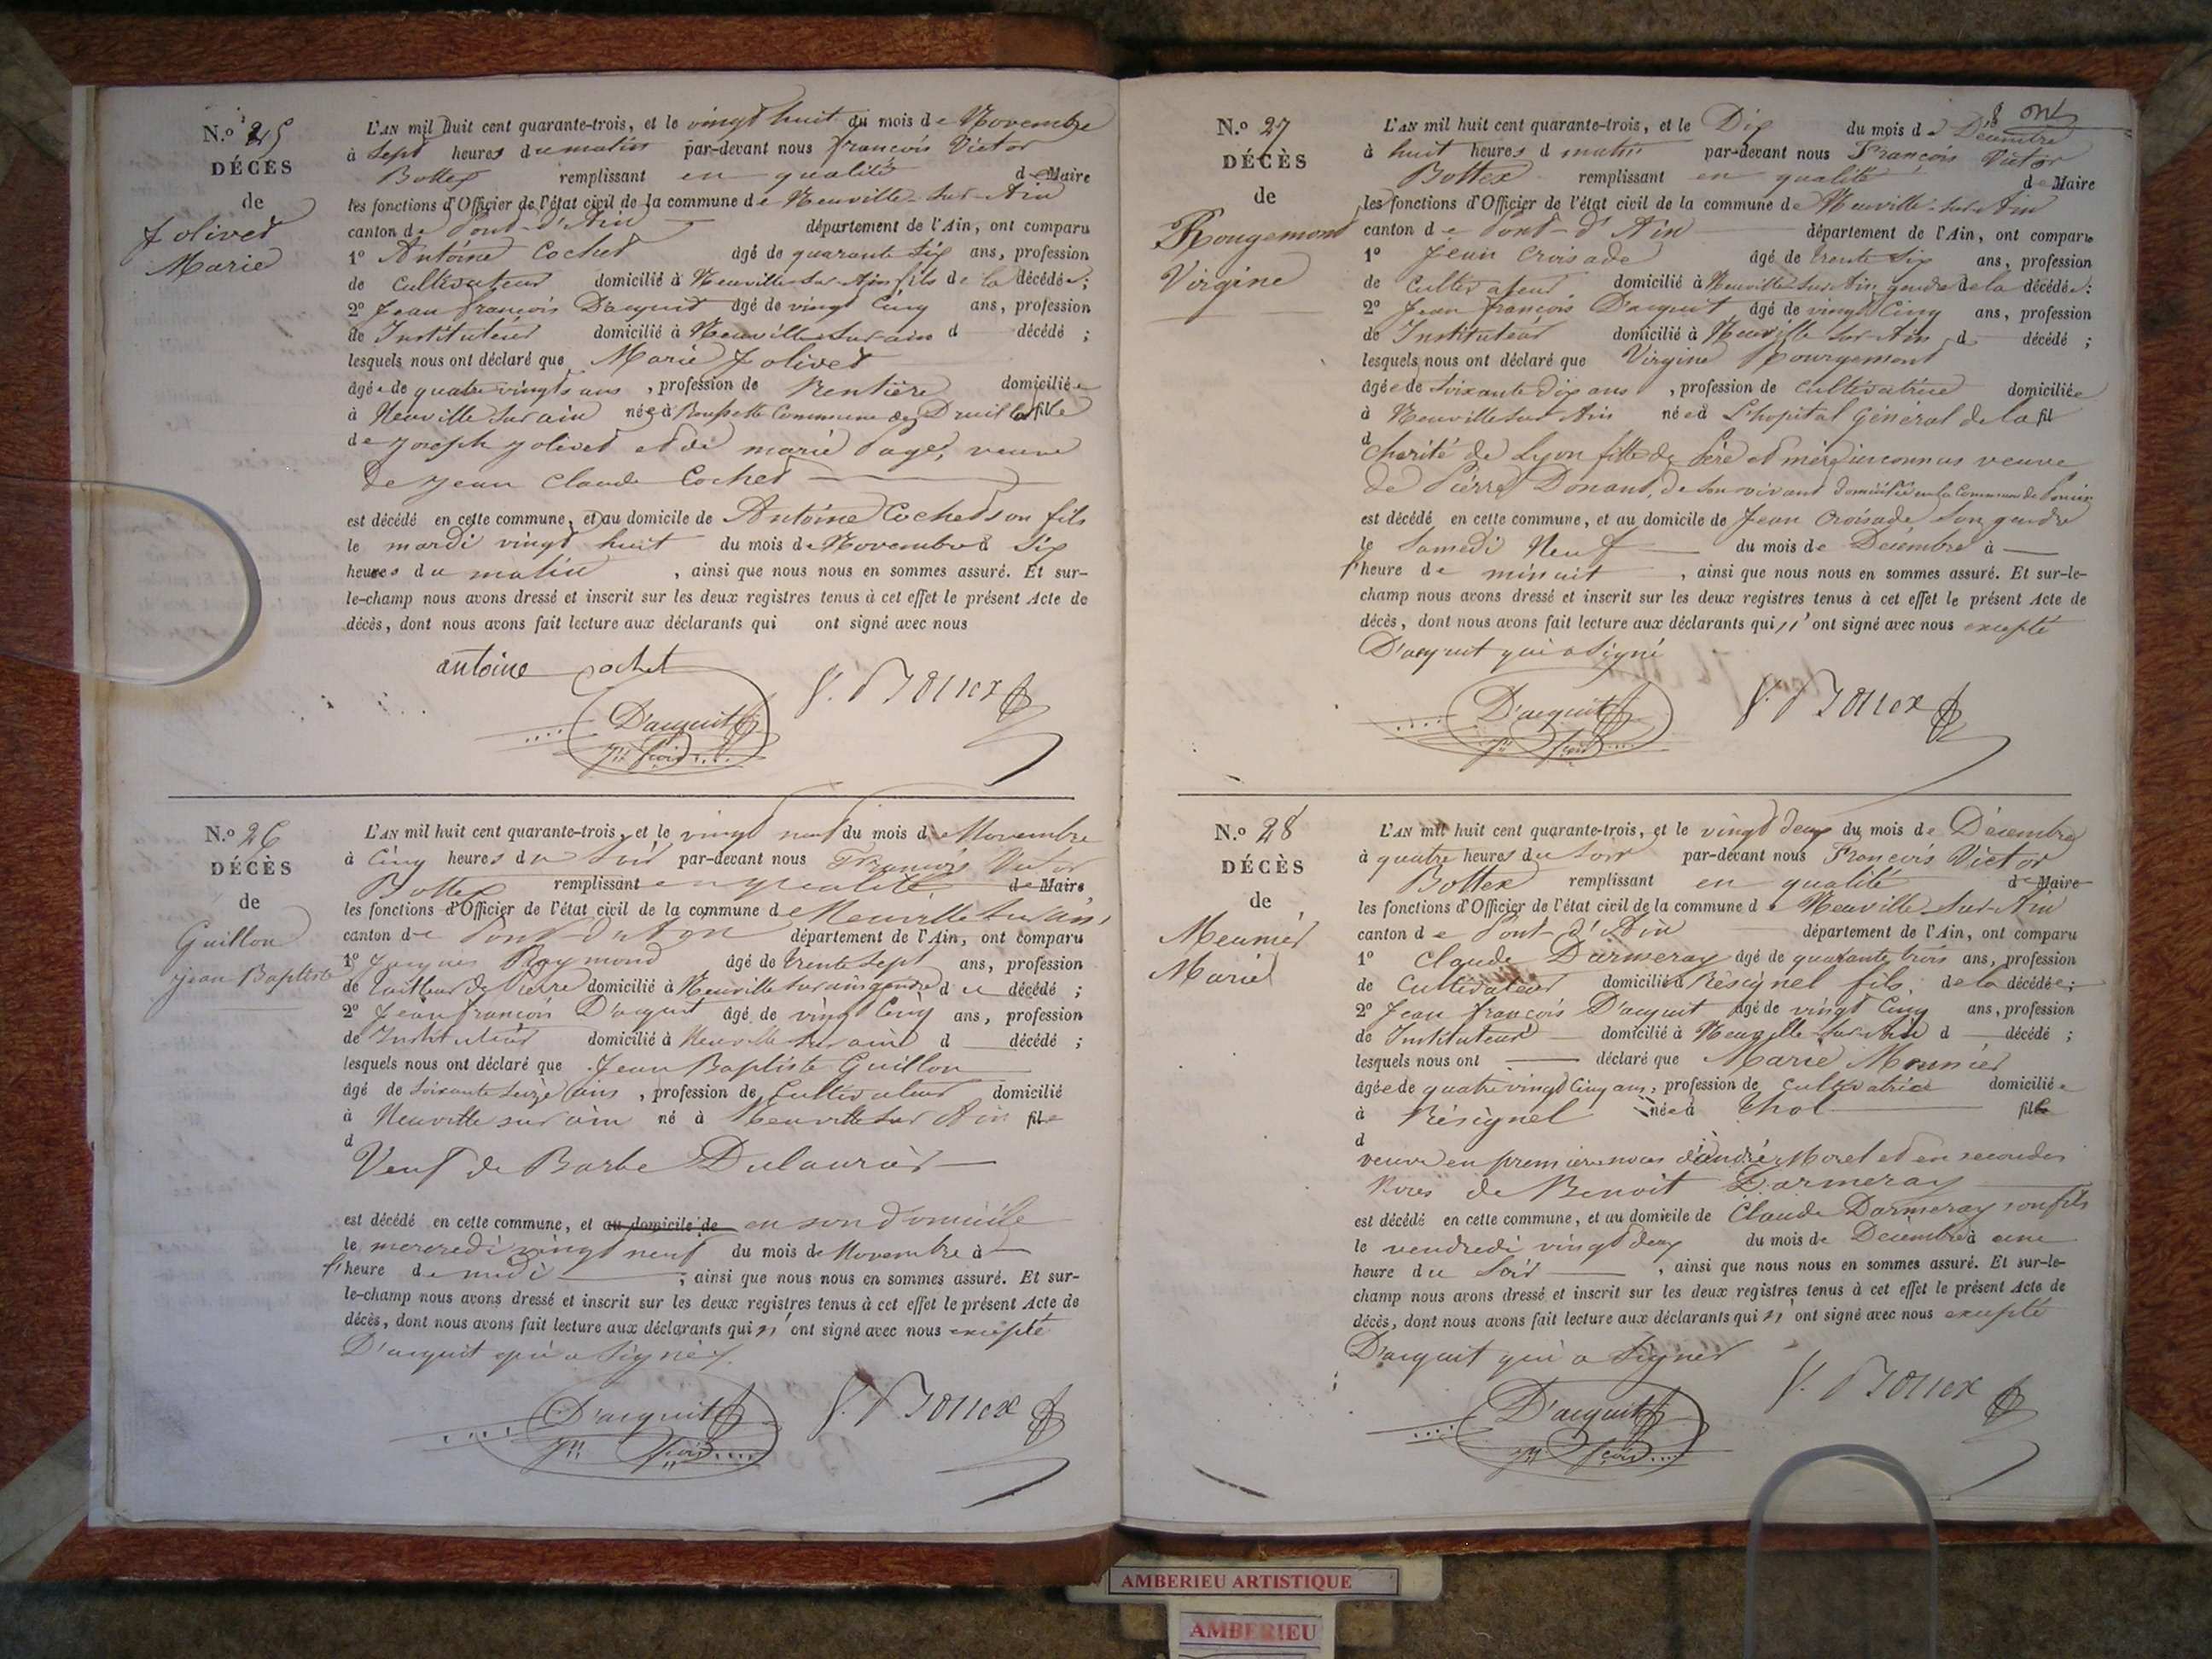 N.o 25
DÉCÈS
de
Jolivet
Marie
L'AN mil huit cent quarante-trois, et le vingt huit du mois de Novembre
à sept heures du matin par-devant nous François Victor
Bottex remplissant en qualité de Maire
les fonctions d'Officier de l'état civil de la commune de Neuville-sur-Ain
canton de Pont-d'Ain département de l'Ain, ont comparu
1o Antoine Cochet âgé de quarante six ans, profession
de Cultivateur domicilié à Neuville sur Ain fils de la décédée;
2o Jean François D'acquit âgé de vingt Cinq ans, profession
de Instituteur domicilié à Neuville sur ain d décédé ;
lesquels nous ont déclaré que Marie Jolivet
âgée de quatre vingts ans , profession de Rentière domiciliée
à Neuville sur ain née à Commune de Druillat fille
de Joseph Jolivet et de marie Page, veuve
de Jean Claude Cochet
est décédé en cette commune, et au domicile de Antoine Cochet son fils
le mardi vingt huit du mois de Novembre à six
heures du matin , ainsi que nous nous en sommes assuré. Et sur-
le-champ nous avons dressé et inscrit sur les deux registres tenus à cet effet le présent Acte de
décès, dont nous avons fait lecture aux déclarants qui ont signé avec nous
antoine Cochet
D'acquit
Jn fcois
V. Bottex
N.o 26
DÉCÈS
de
Guillon
Jean Baptiste
L'AN mil huit cent quarante-trois, et le vingt neuf du mois de Novembre
à Cinq heures du soir par-devant nous François Victor
Bottex remplissant en qualité de Maire
les fonctions d'Officier de l'état civil de la commune de Neuville sur ain
canton de Pont-d'Ain département de l'Ain, ont comparu
1o Jacques Raymond âgé de trente sept ans, profession
de tailleur de Pierre domicilié à Neuville sur ain gendre du décédé ;
2o Jean françois D'acquit âgé de vingt Cinq ans, profession
de Instituteur domicilié à Neuville sur ain d décédé ;
lesquels nous ont déclaré que Jean Baptiste Guillon
âgé de soixante seize ans , profession de Cultivateur domicilié
à Neuville sur ain né à Neuville sur Ain fils
d
Veuf de Barbe Dulaurier
est décédé en cette commune, et au domicile de en son domicile
le mercredi vingt neuf du mois de Novembre à
l'heure de midi ; ainsi que nous nous en sommes assuré. Et sur-
le-champ nous avons dressé et inscrit sur les deux registres tenus à cet effet le présent Acte de
décès, dont nous avons fait lecture aux déclarants qui n'ont signé avec nous excepté
D'acquit qui a signé
D'acquit
Jn fcois
V. Bottex
N.o 27
DÉCÈS
de
Rougemont
Virgine
L'AN mil huit cent quarante-trois, et le Dix du mois de Décembre
à huit heures d matin par-devant nous François Victor
Bottex remplissant en qualité de Maire
les fonctions d'Officier de l'état civil de la commune de Neuville-sur-Ain
canton de Pont-d'Ain département de l'Ain, ont comparu
1o Jean Croisade âgé de trente six ans, profession
de Cultivateur domicilié à Neuville sur Ain gendre de la décédée;
2o Jean François D'acquit âgé de vingt Cinq ans, profession
de Instituteur domicilié à Neuville sur Ain d décédé ;
lesquels nous ont déclaré que Virgine Rourgemont
âgée de soixante dix ans , profession de cultivatrice domiciliée
à Neuville sur Ain née à L'hopital Géneral de la fil
d
Charité de Lyon fille de Père et mère inconnus veuve
de Pierre Donant, de son vivant domicilié en la Commune de Poncin
est décédé en cette commune, et au domicile de Jean Croisade son gendre
le Samedi Neuf du mois de Décembre à
l'heure de minuit , ainsi que nous nous en sommes assuré. Et sur-le-
champ nous avons dressé et inscrit sur les deux registres tenus à cet effet le présent Acte de
décès, dont nous avons fait lecture aux déclarants qui n'ont signé avec nous excepté
D'acquit qui a signé
D'acquit
Jn fcois
V. Bottex
N.o 28
DÉCÈS
de
Meunier
Marie
L'AN mil huit cent quarante-trois, et le vingt deux du mois de Décembre
à quatre heures du soir par-devant nous François Victor
Bottex remplissant en qualité de Maire
les fonctions d'Officier de l'état civil de la commune de Neuville-sur-Ain
canton de Pont-d'Ain département de l'Ain, ont comparu
1o Claude Darmeray âgé de quarante trois ans, profession
de Cultivateur domicilié à Résignel fils de la décédée;
2o Jean françois D'acquit âgé de vingt Cinq ans, profession
de Instituteur domicilié à Neuville sur Ain d décédé ;
lesquels nous ont déclaré que Marie Meunier
âgée de quatre vingt Cinq ans, profession de cultivatrice domiciliée
à Résignel née à Thol fille
d
veuve en premières noces d'andré Morel et en secondes
Noces de Benoit Darmeray
est décédé en cette commune, et au domicile de Claude Darmeray son fils
le vendredi vingt deux du mois de Décembre à une
heure du soir , ainsi que nous nous en sommes assuré. Et sur-le-
champ nous avons dressé et inscrit sur les deux registres tenus à cet effet le présent Acte de
décès, dont nous avons fait lecture aux déclarants qui n'ont signé avec nous excepté
D'acquit qui a signer
D'acquit
Jn fcois
V. Bottex
AMBERIEU ARTISTIQUE
AMBERIEU